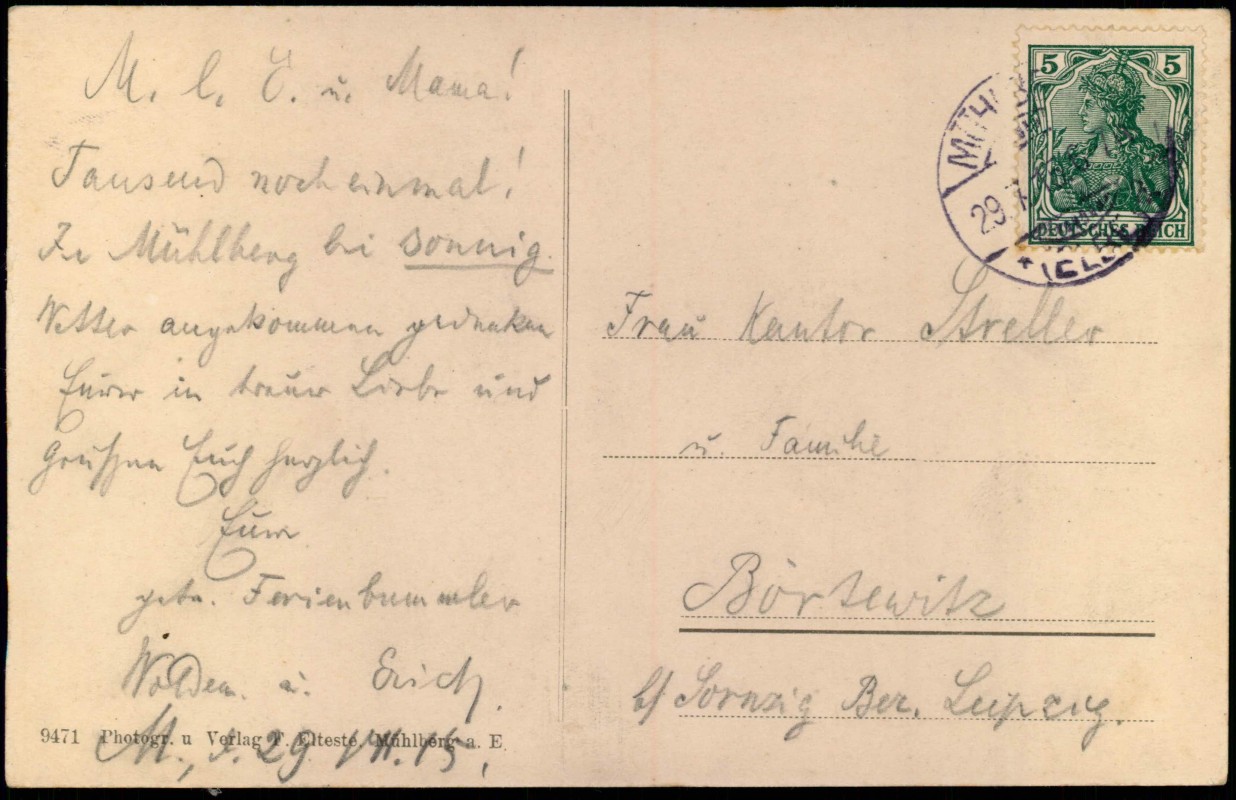 M. l. E. u. Mama!
Tausend noch einmal!
In Mühlberg bei sonnig.
Wetter angekommen gedenken
Eurer in treuer Liebe und
grüßen Euch herzlich.
Eure
getr. Ferienbummler
Woldem. u. Erich.
M., d. 29. VII. 15.
9471 Photogr. u Verlag T. Elteste, Mühlberg a. E
5 5
DEUTSCHES REICH
MÜHL
29. 7.
(ELBE
Frau Kantor Streller
u. Familie
Börtewitz
b/ Sornzig Bez. Leipzig.